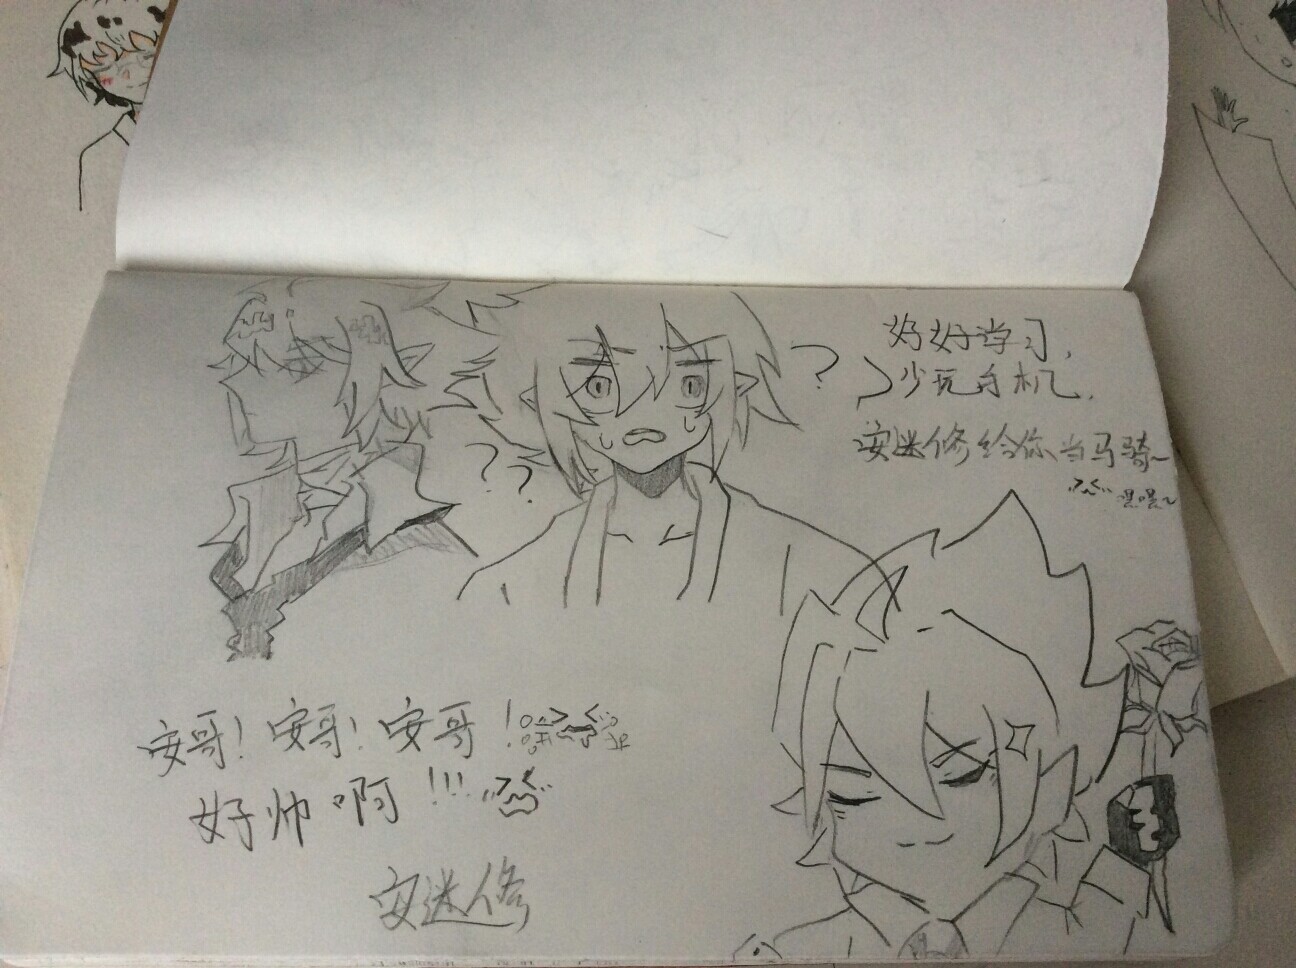 好好学习,
少玩手机.
安迷修给你当马骑~
嘿嘿~
? ??
安哥! 安哥! 安哥!
好帅啊!!!
安迷修